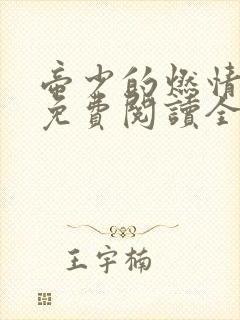 帝少的燃情
免費閱讀全
王宇楠